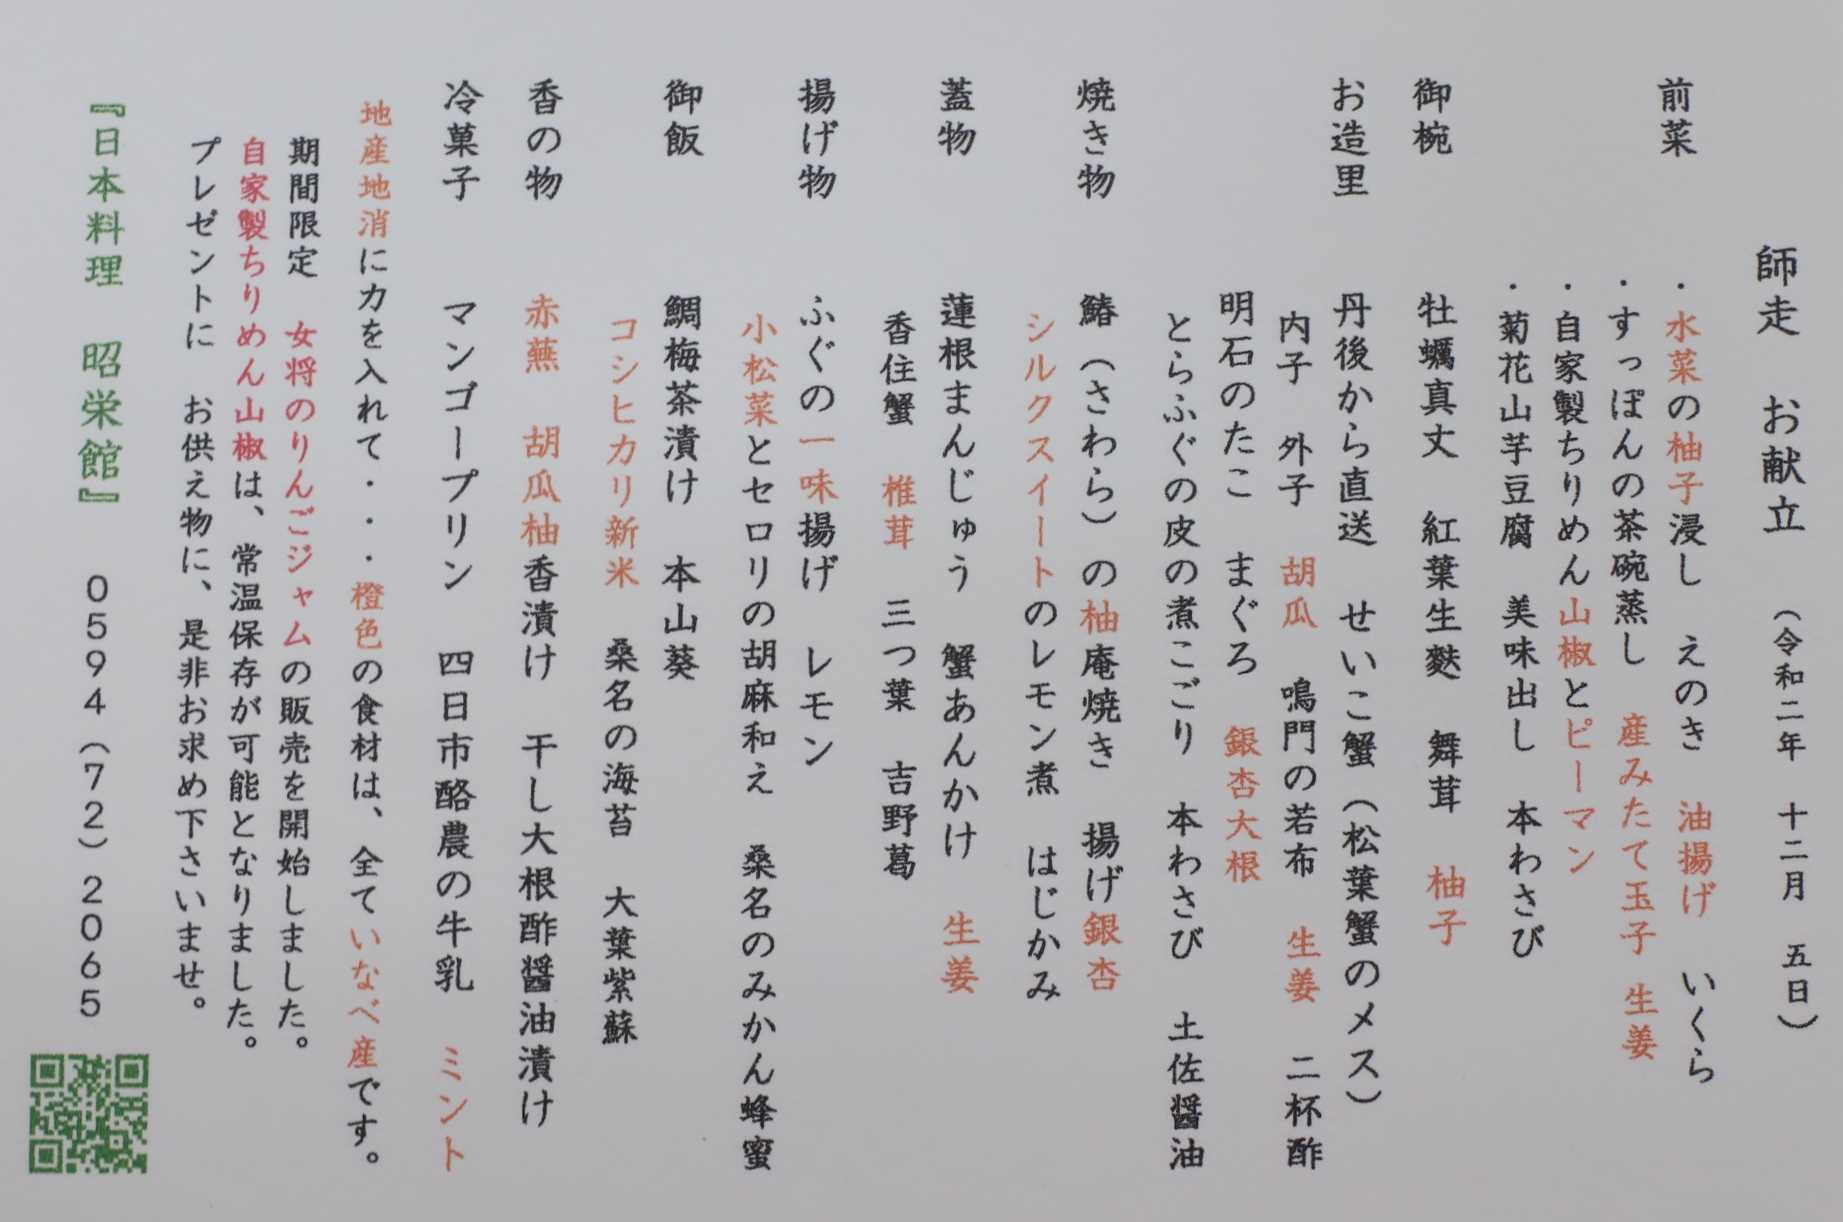 師走　お献立　（令和二年　十二月　五日）
前菜　・水菜の柚子浸し　えのき　油揚げ　いくら
・すっぽんの茶碗蒸し　産みたて玉子　生姜
・自家製ちりめん山椒とピーマン
・菊花山芋豆腐　美味出し　本わさび
御椀　牡蠣真丈　紅葉生麩　舞茸　柚子
お造里　丹後から直送　せいこ蟹（松葉蟹のメス）
内子　外子　胡瓜　鳴門の若布　生姜　二杯酢
明石のたこ　まぐろ　銀杏大根
とらふぐの皮の煮こごり　本わさび　土佐醤油
焼き物　鰆（さわら）の柚庵焼き　揚げ銀杏
シルクスイートのレモン煮　はじかみ
蓋物　蓮根まんじゅう　蟹あんかけ　生姜
香住蟹　椎茸　三つ葉　吉野葛
揚げ物　ふぐの一味揚げ　レモン
小松菜とセロリの胡麻和え　桑名のみかん蜂蜜
御飯　鯛梅茶漬け　本山葵
コシヒカリ新米　桑名の海苔　大葉紫蘇
香の物　赤蕪　胡瓜柚香漬け　干し大根酢醤油漬け
冷菓子　マンゴープリン　四日市酪農の牛乳　ミント
地産地消に力を入れて・・・橙色の食材は、全ていなべ産です。
期間限定　女将のりんごジャムの販売を開始しました。
自家製ちりめん山椒は、常温保存が可能となりました。
プレゼントに　お供え物に、是非お求め下さいませ。
『日本料理　昭栄館』　０５９４（７２）２０６５